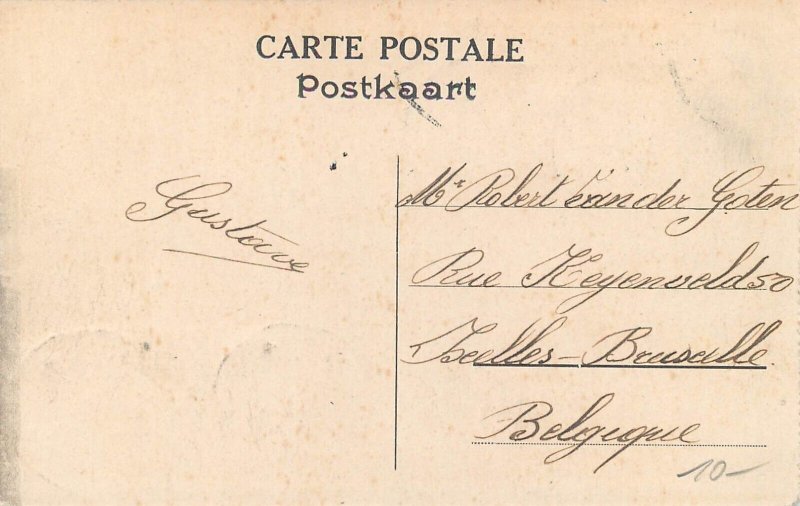 CARTE POSTALE
Postkaart
Gustave
Mr Robert Van der Goten
Rue Keyenveld 50
Ixelles-Bruxelle
Belgique
10-